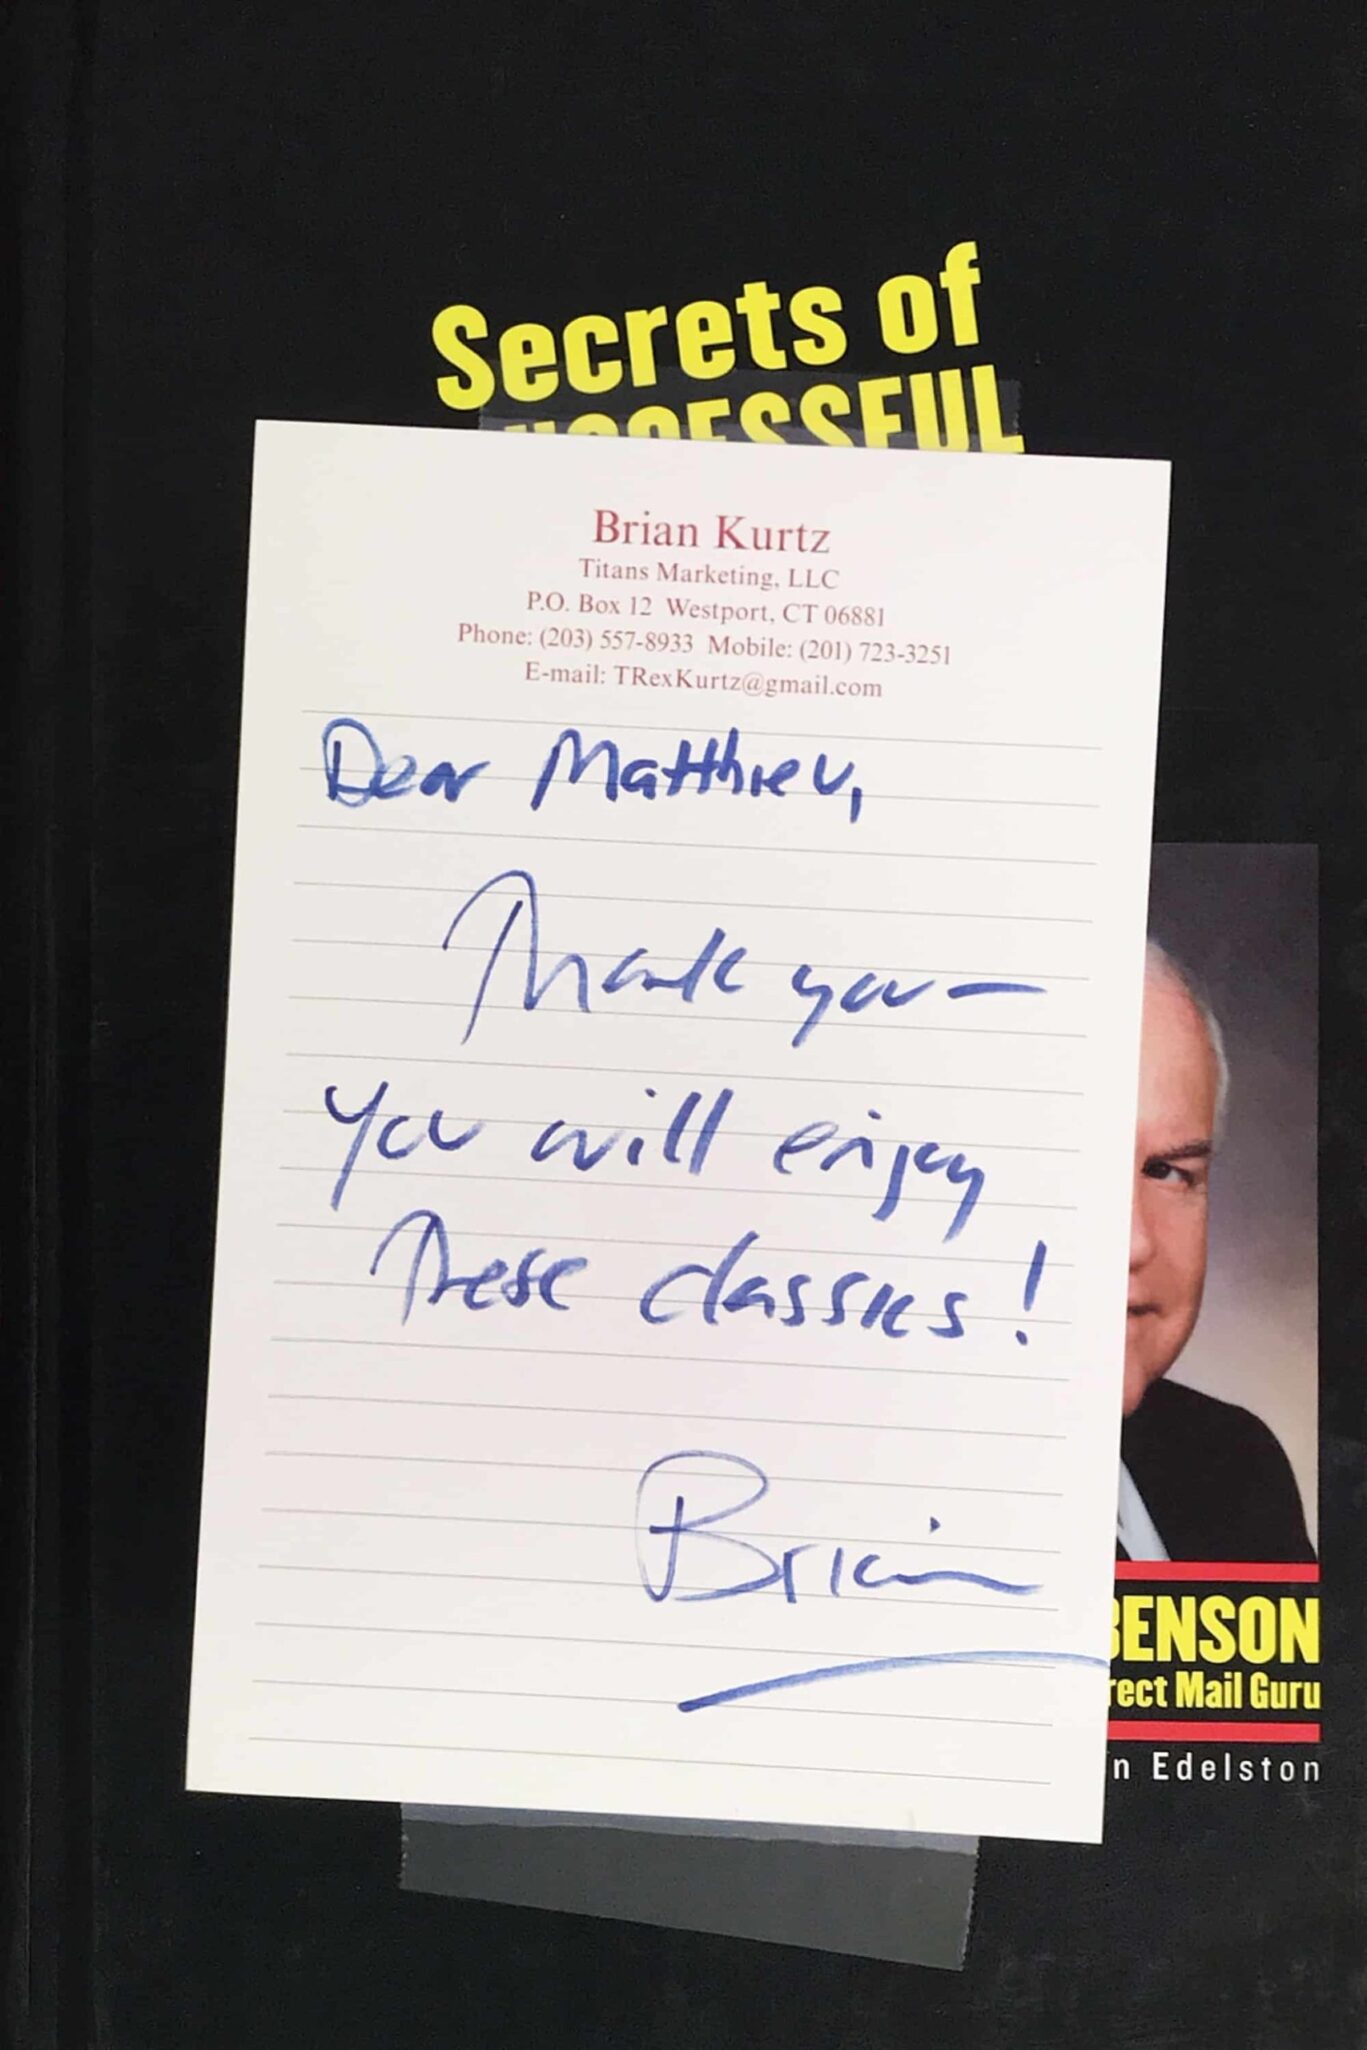 Secrets of
Brian Kurtz
Titans Marketing, LLC
P.O. Box 12 Westport, CT 06881
Phone: (203) 557-8933 Mobile: (201) 723-3251
E-mail: TRexKurtz@gmail.com
Dear Matthieu,
Thank you-
You will enjoy
These classics!
Brian
BENSON
rect Mail Guru
n Edelston